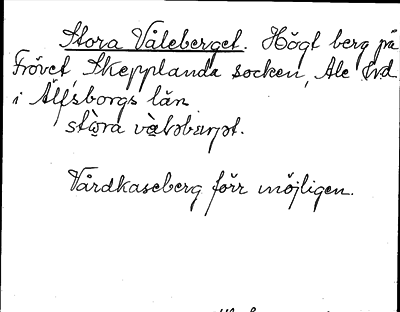 Stora Våleberget. Högt berg på
Frövet, Skepplanda socken, Ale hd
i Älfsborgs län.
Vårdkaseberg förr möjligen.